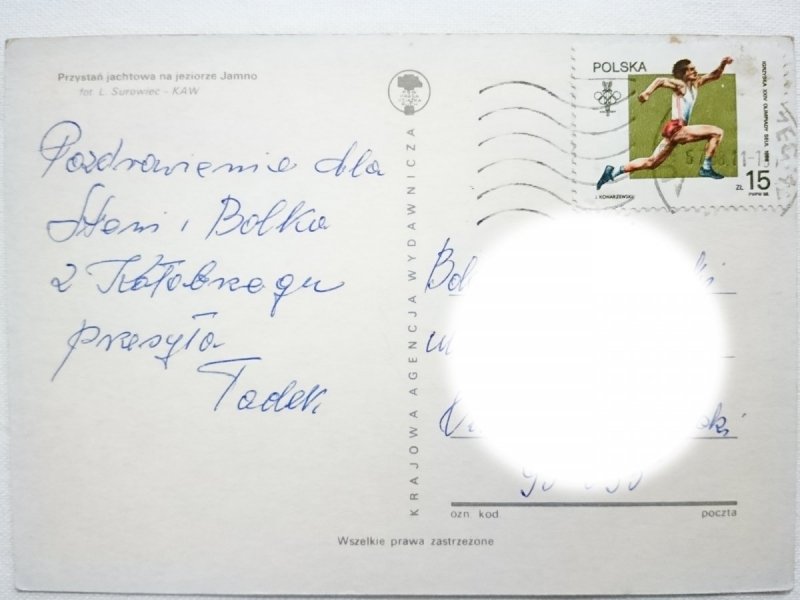 Przystań jachtowa na jeziorze Jamno
fot. Ł. Surowiec - KAW
Pozdrowienia dla
Steni i Bolka
z Kołobrzegu
przesyła
Tadek
KRAJOWA AGENCJA WYDAWNICZA
POLSKA
IGRZYSKA XXIV OLIMPIADY SEUL 1988
ZŁ 15
PWPW 88
J. KONARZEWSKI
Bol
ki
ul
ski
ozn. kod
poczta
Wszelkie prawa zastrzeżone